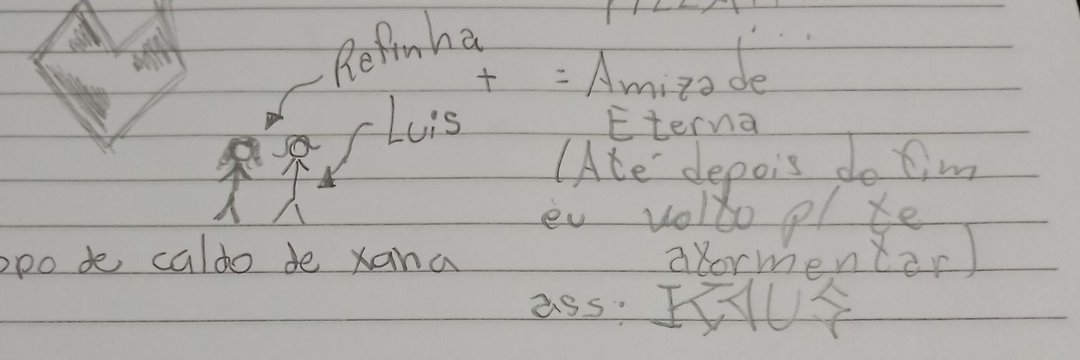 Refinha
+ = Amizade
Luis Eterna
(Até depois do fim
eu volto p/ te
opo de caldo de xana atormentar)
ass: